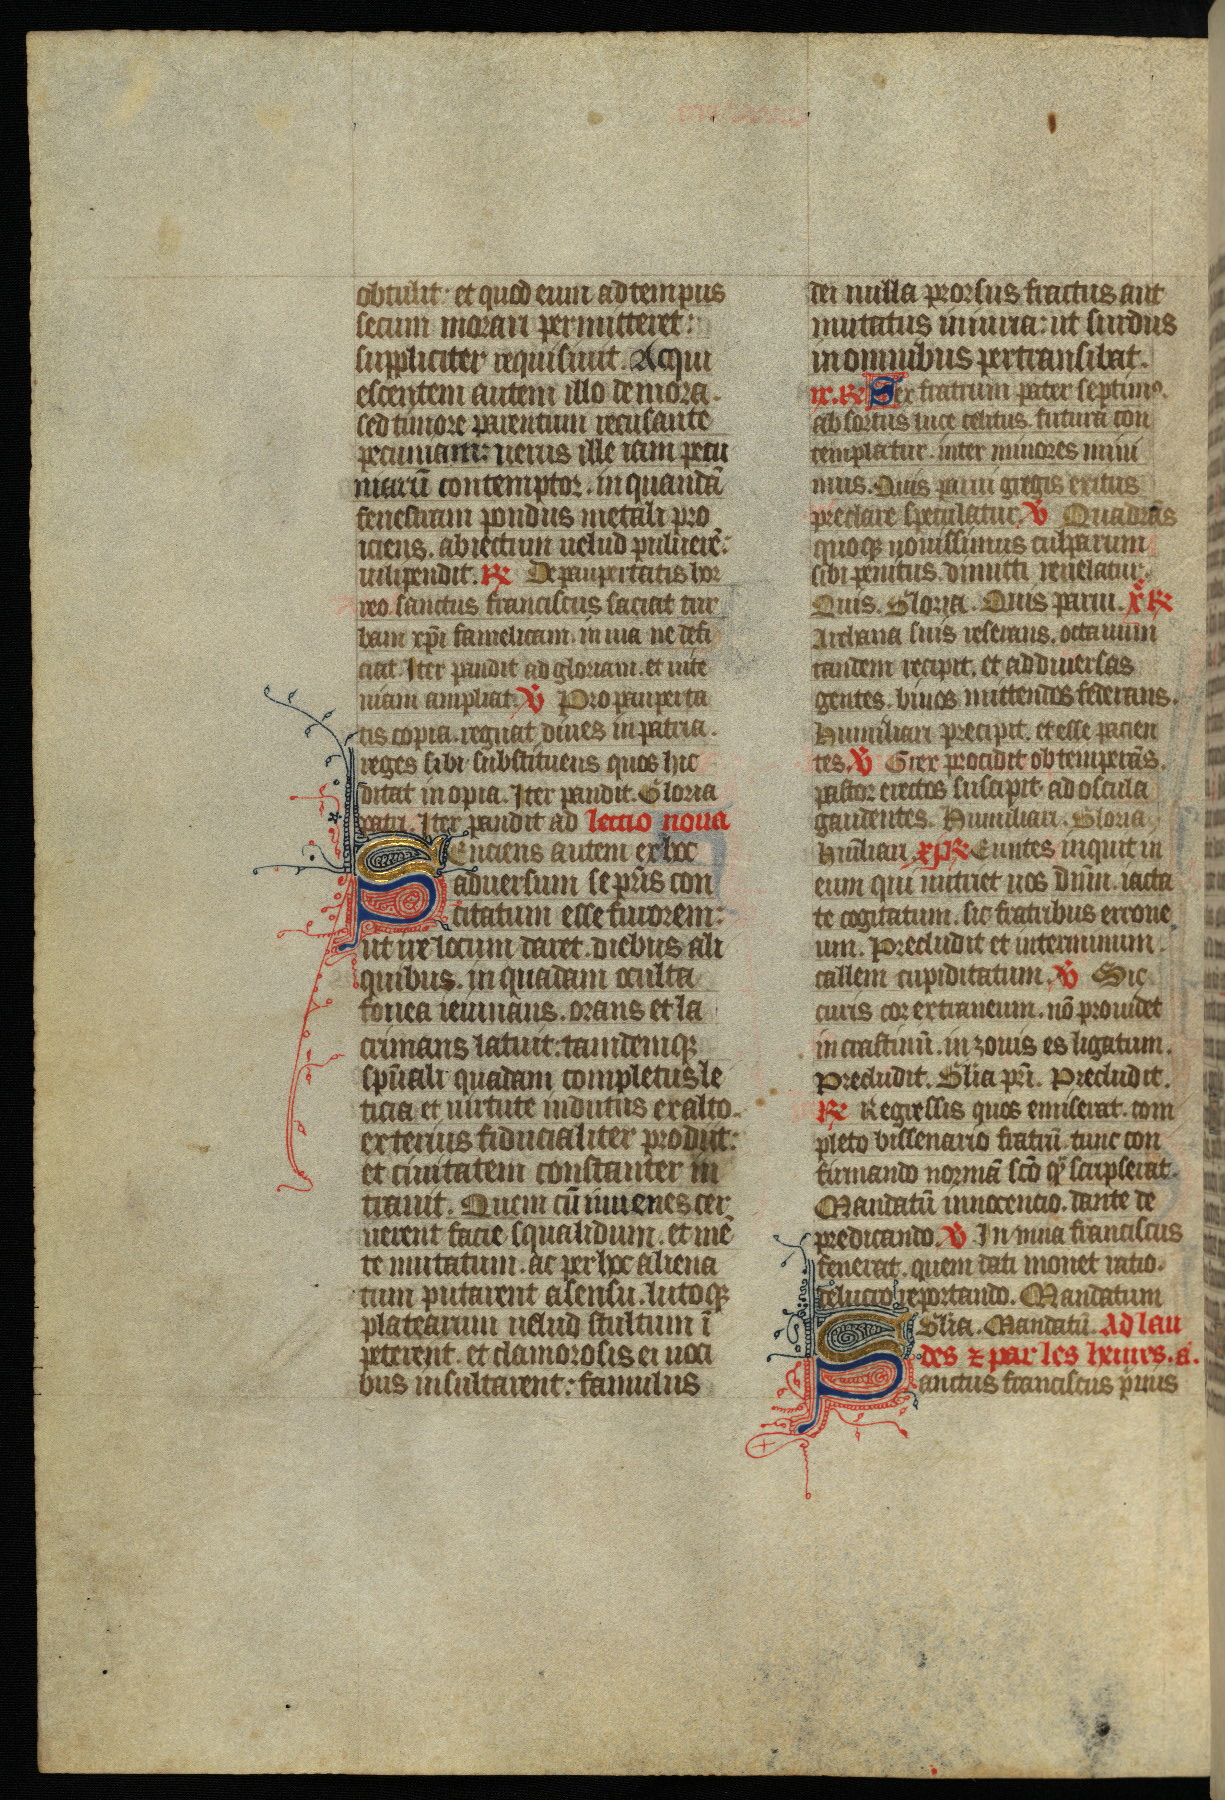 obtulit: et quod eum ad tempus
secum morari permitteret:
suppliciter requisiuit. Acqui
escentem autem illo de mora.
sed timore parentum recusante
pecuniam: uerus ille iam pecu
niarū contemptor. in quandā
fenestram pondus metali pro
iciens. abiectum uelud puluerē:
uilipendit. R͛ De paupertatis hor
reo sanctus franciscus saciat tur
bam xp̄i famelicam. in uia ne defi
ciat. Iter pandit ad gloriam. et uite
uiam ampliat. V̛ Pro pauperta
tis copia. regnat diues in patria.
reges sibi substituens quos hic
ditat inopia. Iter pandit. Gloria
patri. Iter pandit ad lectio nona
Senciens autem ex hoc
aduersum se pr̄is con
citatum esse furorem:
ut ire locum daret. diebus ali
quibus. in quadam occulta
fouea ieiunans. orans et la
crimans latuit: tamdemq
spūali quadam completus le
ticia et uirtute indutus ex alto.
exterius fiducialiter prodiit:
et ciuitatem constanter in
trauit. Quem cū iuuenes cer
nerent facie squalidum. et mē
te mutatum. ac per hoc aliena
tum putarent a sensu. lutoq
platearum uelud stultum ī
peterent. et clamorosis ei uoci
bus insultarent: famulus
dei nulla prorsus fractus aut
mutatus iniuria: ut surdus
in omnibus pertransibat.
ix. R͛ Sex fratrum pater septimꝰ.
absortus luce celitus. futura con
templatur. inter minores mini
mus. Quis parui gregis exitus
preclare speculatur. V̛ Quadrās
quoq nouissimus culparum
sibi penitus. dimitti reuelatur.
Quis. Gloria. Quis parui. x͛ R͛
Archana suis reserans. octauum
tandem recipit. et ad diuersas
gentes. binos mittendos federans.
Humiliari precipit. et esse pacien
tes. V̛ Grex procidit obtemperās.
pastor erectos suscipit. ad oscula
gaudentes. Humiliari. Gloria
Hūiliari. xj R͛ Euntes inquit in
eum qui nutriet uos dn̄m. iacta
te cogitatum. sic fratribus errone
um. Precludit et interminum
callem cupiditatum. V̛ Sic
curis cor extraneum. nō prouidet
in crastinū. in zonis es ligatum.
Precludit. Gl̄ia pr̄i. Precludit.
R͛ Regressis quos emiserat. com
pleto bissenario fratrū. tunc con
firmando normā scō q̄ scripserat.
Mandatū innocencio. dante de
predicando. V̛ In mna franciscus
fenerat. quem dati monet ratio.
de lucro reportando. Mandatum
Gl̄ia. Mandatū. Ad lau
des ⁊ par les heures. a̓.
Sanctus franciscus prius